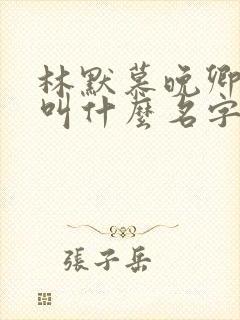 林默慕晚卿
叫什麼名字
張子岳